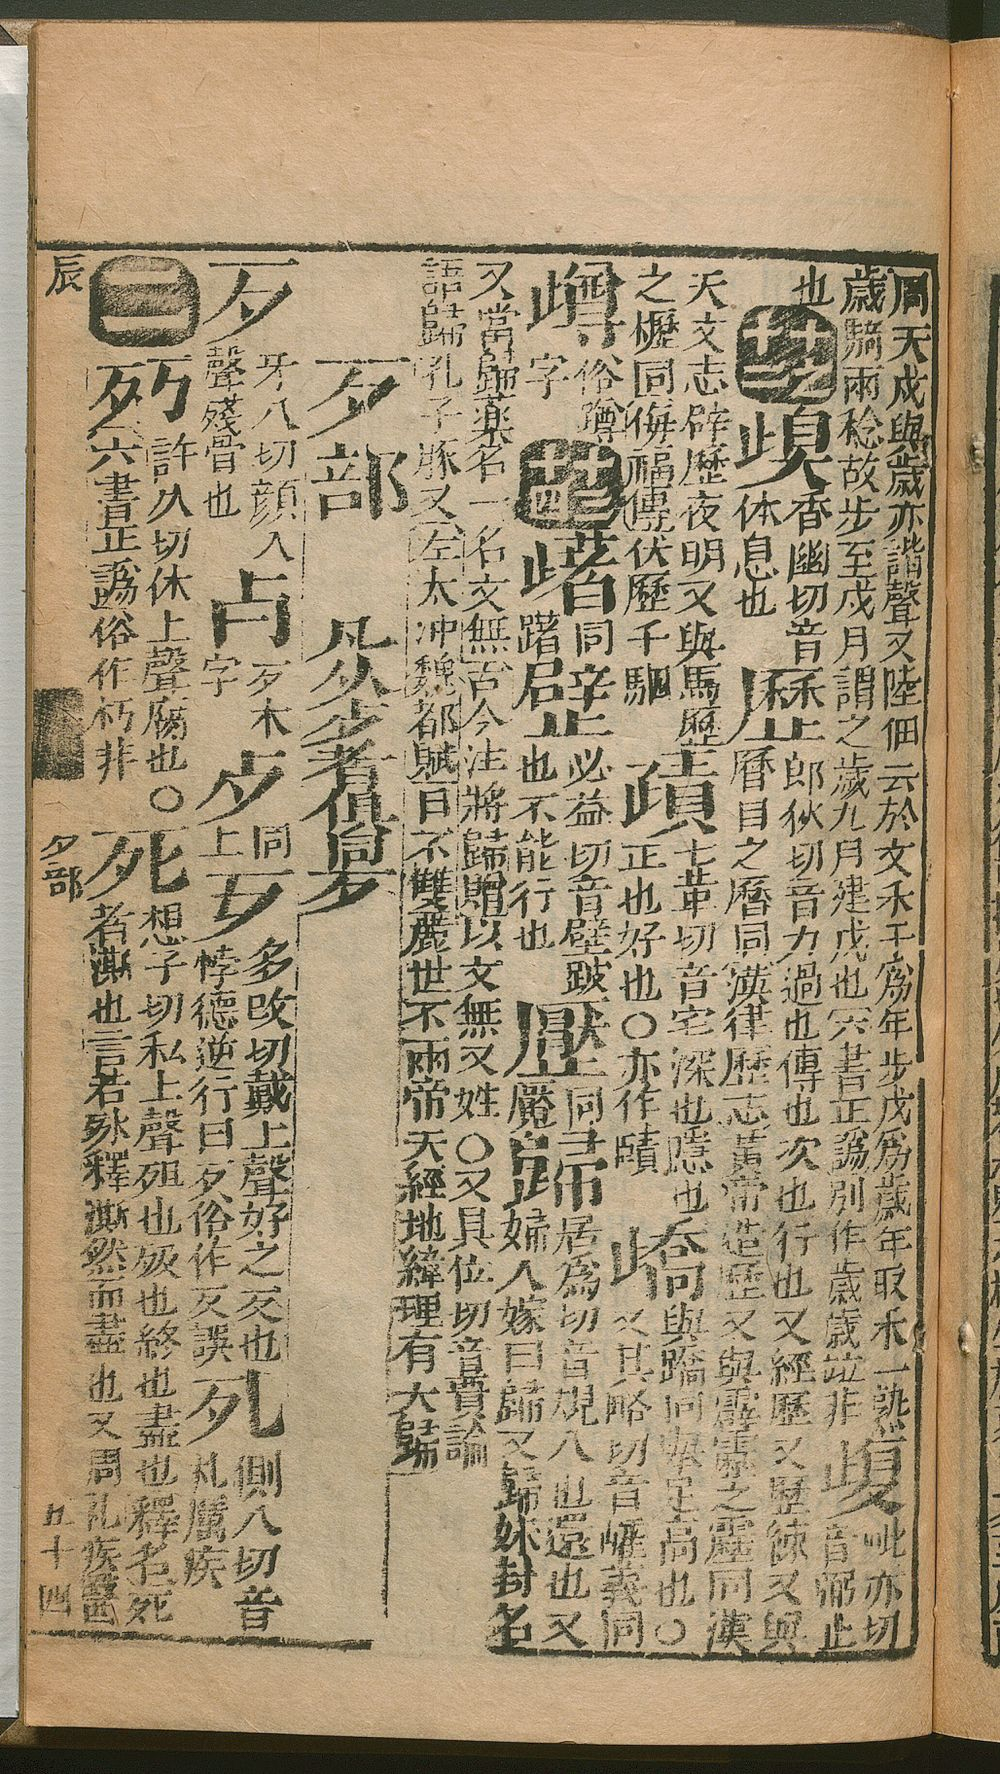 周天戌與歲亦諧聲又陸佃云於文禾干爲年步戌爲歲年取禾一熟
歲騎兩稔故步至戌月謂之歲九月建戌也六書正譌別作歲歳竝非
𡻕 毗亦切音弼止也
香幽切音休息也
歷 郎狄切音力過也傳也次也行也又經歷又歷錄又與曆目之曆同漢律歷志黃帝造歷又與霹靂之靂同漢
天文志辟歷夜明又與馬歷之櫪同侮福傳伏歷千駟
七革切音宅深也隱也正也好也○亦作賾
與蹻同舉足高也○又其略切音 義同
俗蹲字
同躇
必益切音壁跛也不能行也
同魘
歸 居爲切音規入也還也又婦人嫁曰歸又歸妹封名
又當歸藥名一名文無古今注將歸贈以文無又姓○又具位切音匱論
語歸孔子豚又左太冲魏都賦曰不雙麗世不兩帝天經地緯理有大歸
歹部 凡从歹者俱同歹
歹 牙八切顔入聲殘骨也
歺 歹木字
同上
多改切戴上聲好之反也悖德逆行曰歹俗作歹誤
側八切音札厲疾
二
朽 許久切休上聲腐也○六書正譌俗作朽非
死 想子切私上聲殂也殁也終也盡也釋名死者澌也言若冰釋澌然而盡也又周礼疾醫
辰
歹部
五十四